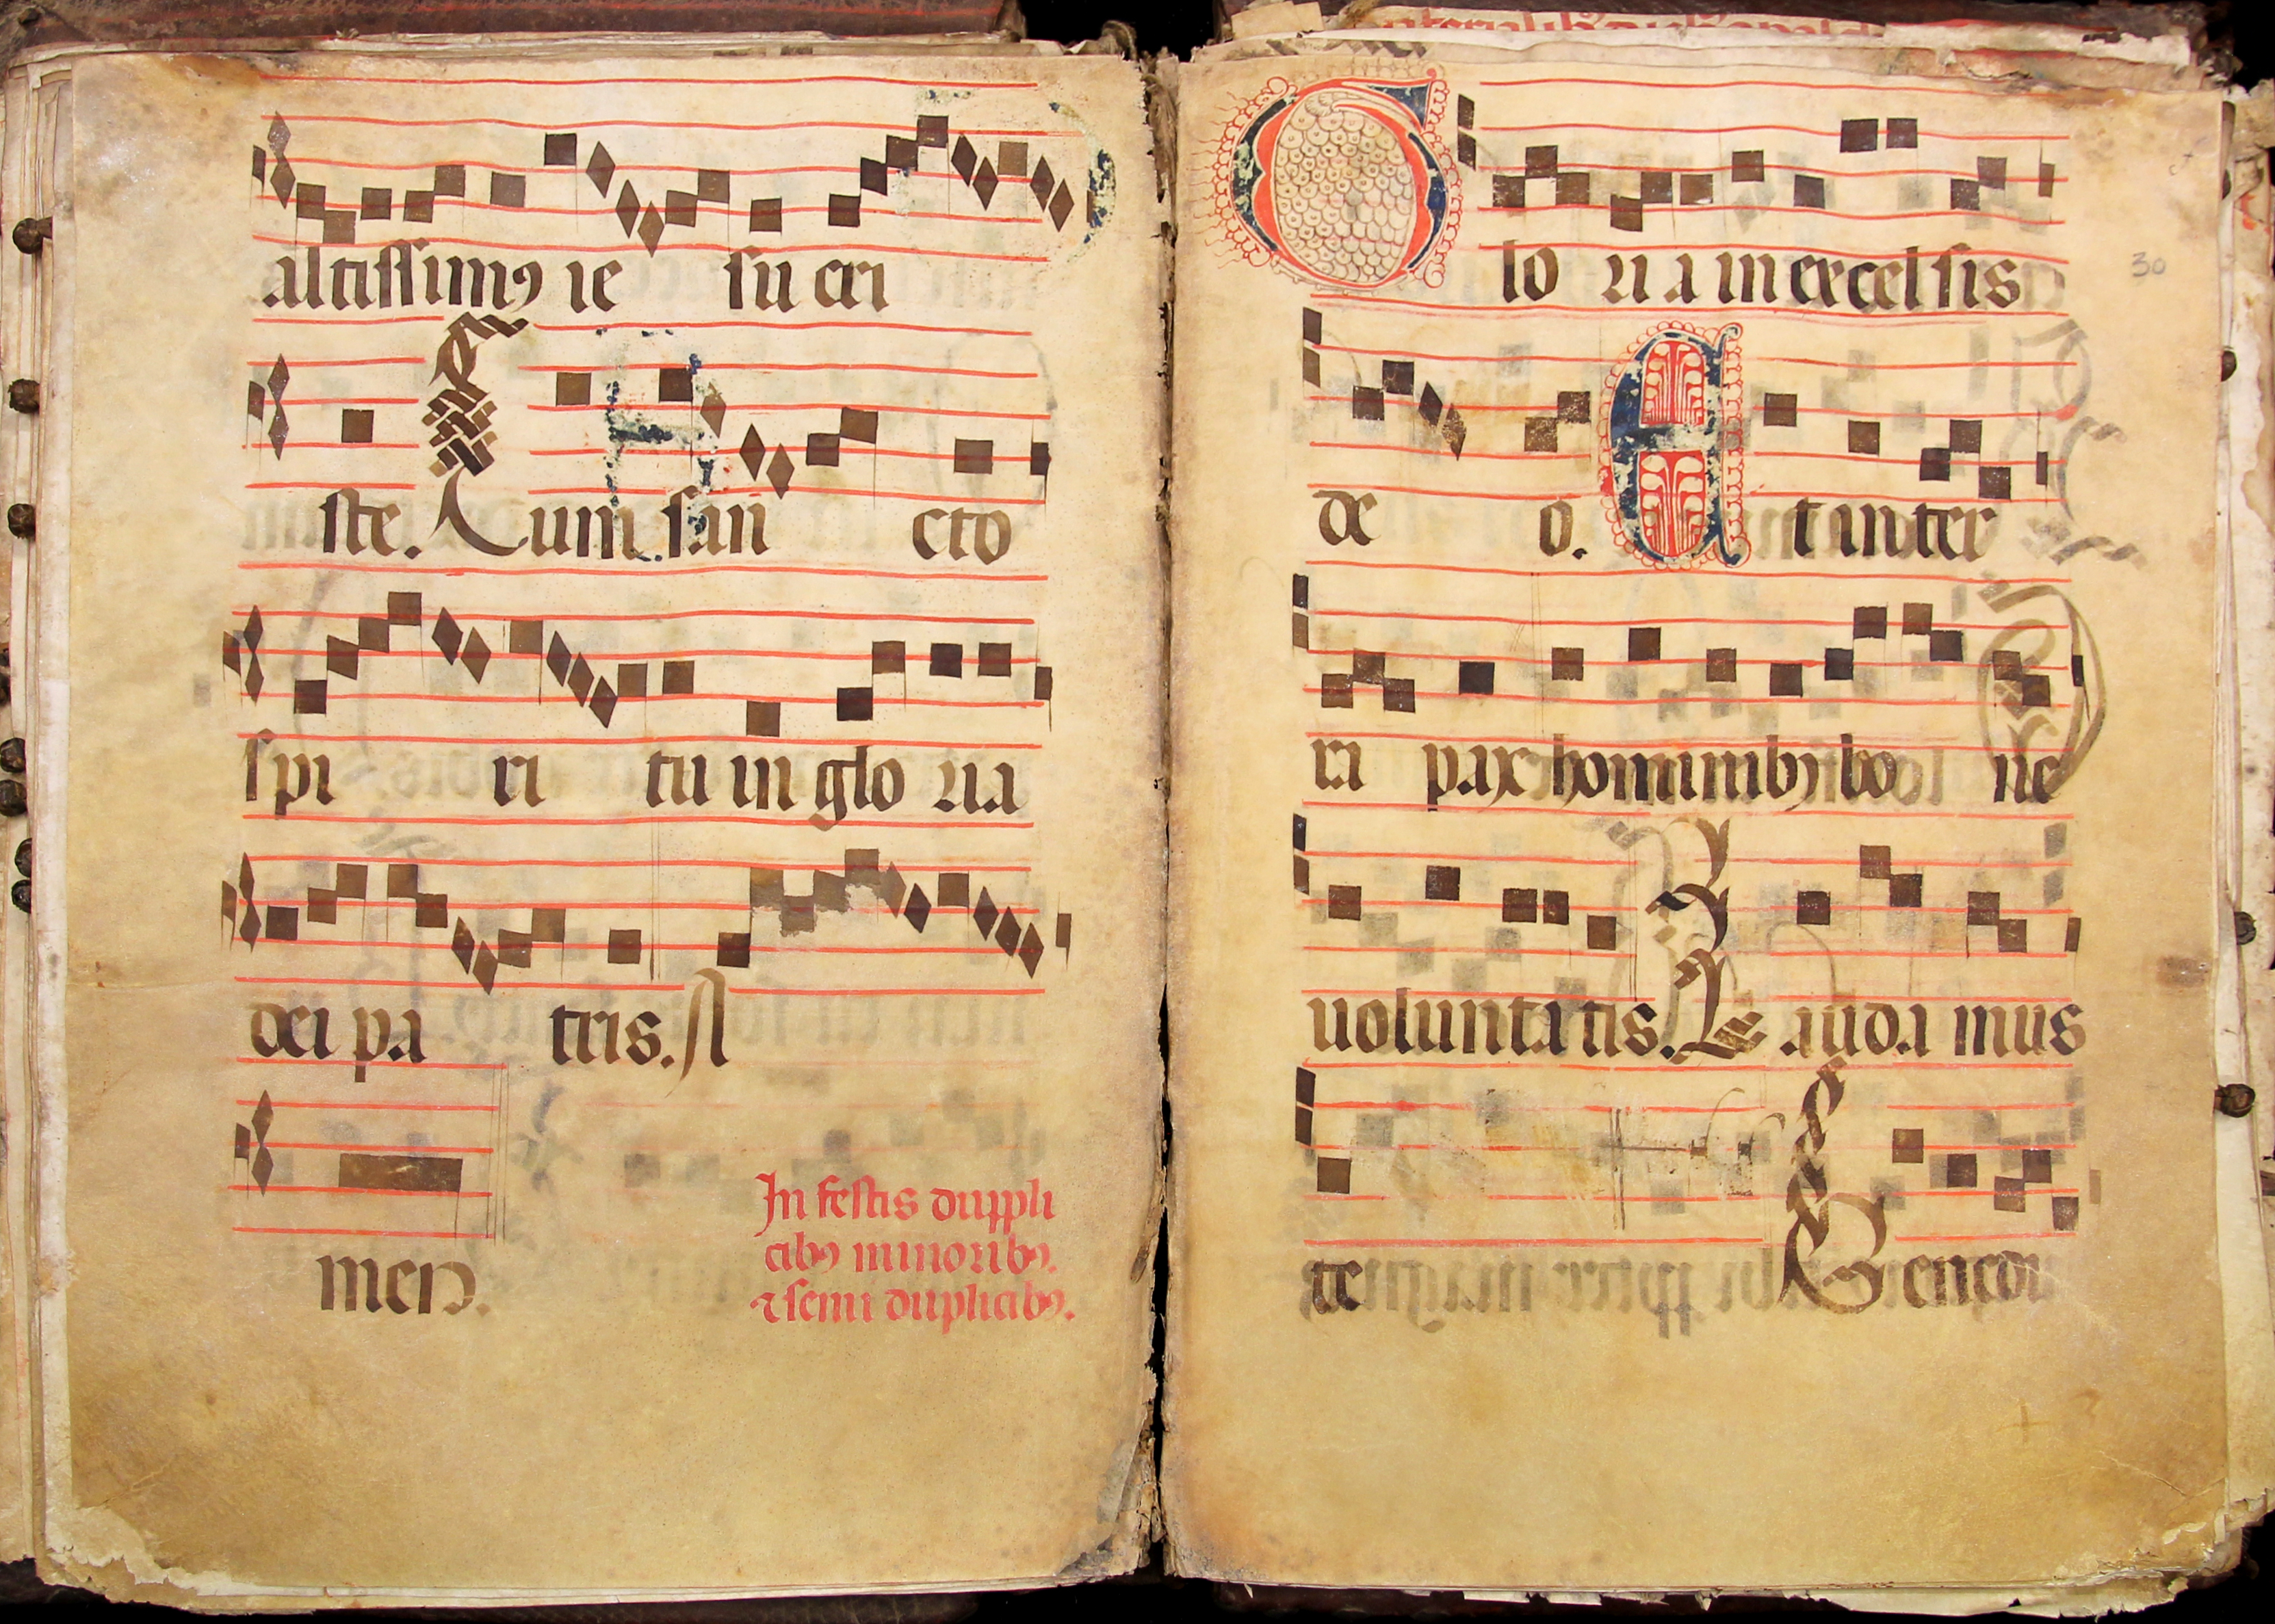 altissimꝰ ie su cri
ste. Cum san cto
spi ri tu in glo ria
dei pa tris. A
men.
In festis duppli
cibꝰ minoribꝰ.
⁊ semi duplicibꝰ.
Glo ri a in excel sis
de o. Et in ter
ra pax hominibꝰ bo ne
uolunta tis. Lauda mus
te Benedi
30